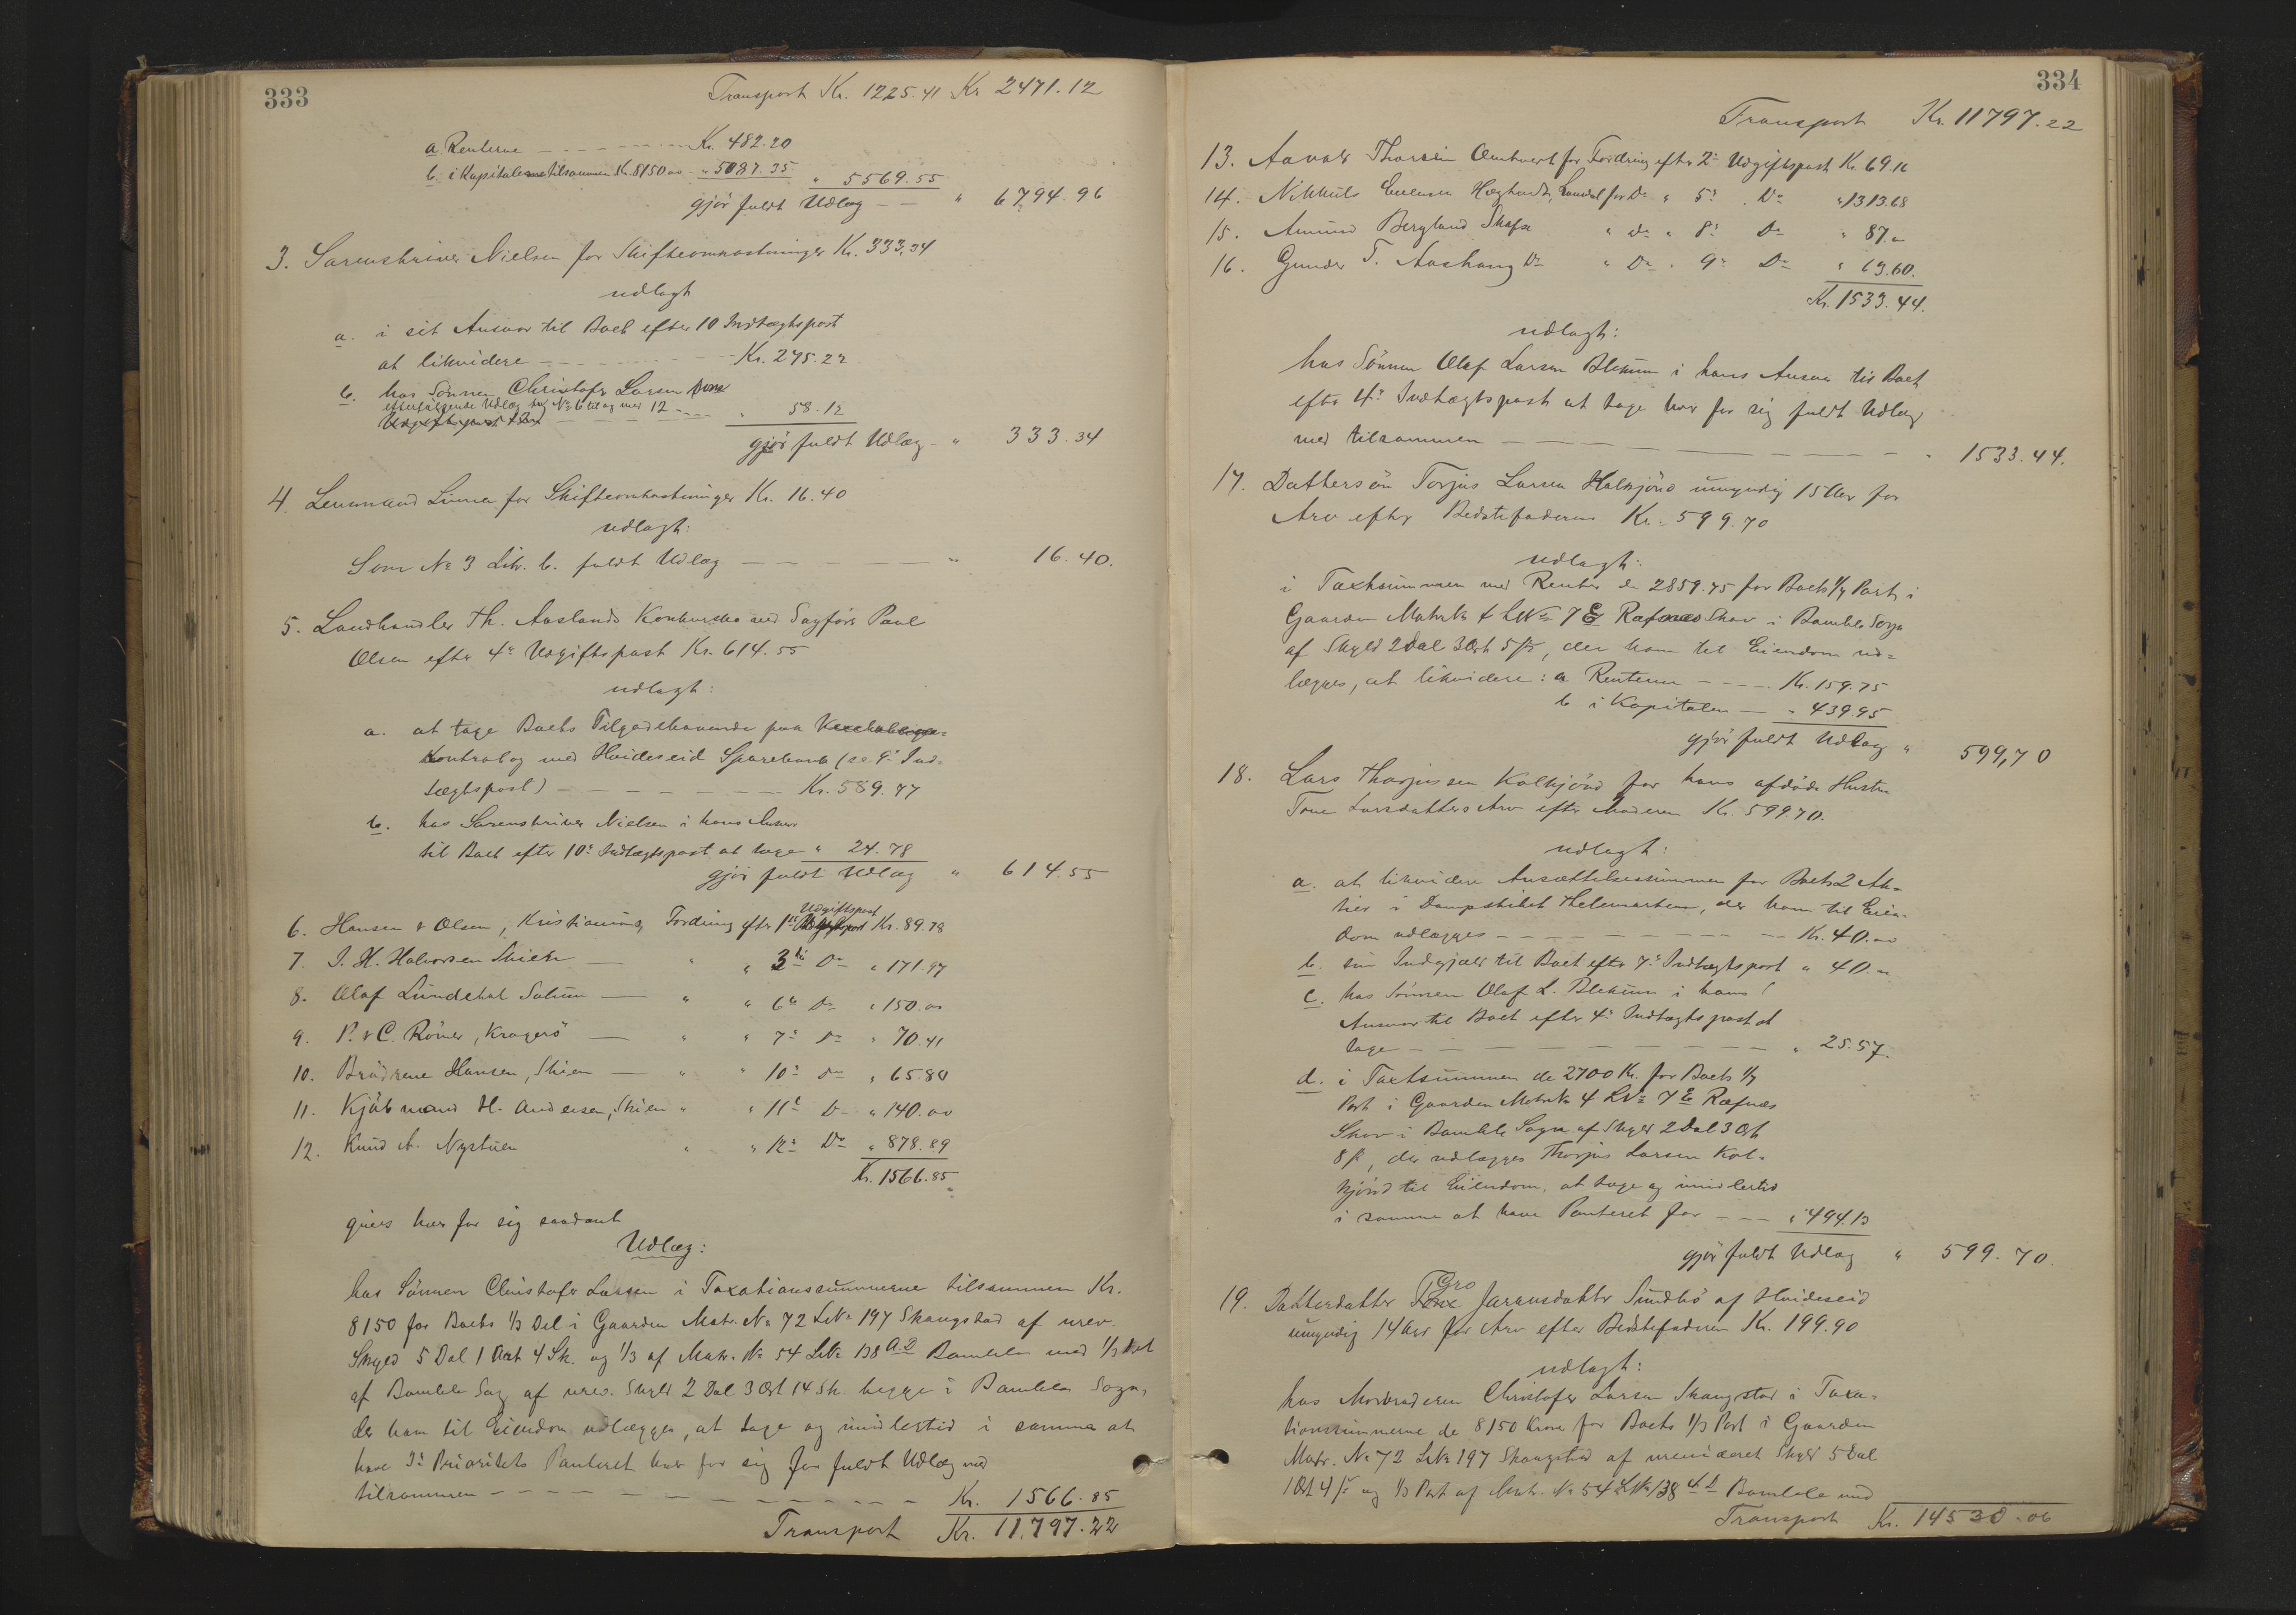 333
Transport Kr. 1225.41 Kr 2471.12
a. Renterne - - - Kr. 482.20
b. i Kapitalerne tilsammen Kr. 8150.00 - " 5087.35 " 5569.55
gjör fuldt Udlæg - - " 6794.96
3. Sorenskriver Nielsen for Skifteomkostninger Kr. 333.34
udlagt
a. i sit Ansvar til Boet efter 10 Indtægtspost
at likvidere - - - Kr. 275.22
b. hos Sönnen Christofer Larsen
efterfølgende Udlæg No 6 til og med 12 - - " 58.12
gjör fuldt Udlæg - " 333.34
4. Lensmand Linnea for Skifteomkostninger Kr. 16.40
udlagt:
Som No 3 Litr. b. fuldt Udlæg - - - " 16.40.
5. Landhandler Th. Aaslands Konkursbo ved Sagförer Paul
Olsen efter 4e Udgiftspost Kr. 614.55
udlagt:
a. at tage Boets Tilgodehavende paa
Kontrabog med Hvideseid Sparebank (se 9e Ind-
tægtspost) - - - Kr. 589.77
b. hos Sorenskriver Nielsen i hans Ansvar
til Boet efter 10e Indtægtspost at tage " 24.78
gjör fuldt Udlæg " 614.55
6. Hansen & Olsen, Kristiania, Fordring efter 1ste Udgiftspost Kr. 89.78
7. J. H. Halvorsen Skien — " " 3die Do " 171.97
8. Olaf Lundehal Solum — " " 6te Do " 150.00
9. P. & C. Römer, Kragerö — " " 7e Do " 70.41
10. Brödrene Hansen, Skien — " " 10e Do " 65.80
11. Kjöbmand H. Andersen, Skien " " 11e Do " 140.00
12. Knud A. Nystuen " " 12e Do " 878.89
Kr. 1566.85
gives hver for sig saadant
Udlæg:
hos Sönnen Christofer Larsen i Taxationssummerne tilsammen Kr.
8150 for Boets 1/3 Del i Gaarden Matr. No 72 LNo 197 Skaugstad af urev.
Skyld 5 Dal 1 Ort 4 Sk. og 1/3 af Matr. No 54 LNo 138 a.b Bamble med 1/3 Part
af Bamble Sag af urev. Skyld 2 Dal 3 Ort 14 Sk. begge i Bamble Sogn,
der ham til Eiendom udlægges, at tage og imidlertid i samme at
have 3e Prioritets Panteret hver for sig for fuldt Udlæg med
tilsammen - - - Kr. 1566.85
Transport Kr. 11,797.22
334
Transport Kr. 11797.22
13. Aavald Thorsen Omtvedt for Fordring efter 2e Udgiftspost Kr. 69.16
14. Nikkuls Evensen Hægtvedt, Landal for Do " 5e Do " 1313.68
15. Amund Bergland Skafse " Do " 8e Do " 87.00
16. Gunder T. Aashaug Do " Do " 9e Do " 63.60.
Kr. 1533.44.
udlagt:
hos Sönnen Olaf Larsen Blekum i hans Ansvar til Boet
efter 4e Indtægtspost at tage hver for sig fuldt Udlæg
med tilsammen - - - " 1533.44.
17. Dattersön Torjus Larsen Kolkjönd umyndig 15 Aar for
Arv efter Bedstefaderen Kr. 599.70
udlagt:
i Taxtsummen med Renter de 2859.75 for Boets 1/3 Part i
Gaarden Matr. No 4 LNo 7 E Rafnæs Skov i Bamble Sogn
af Skyld 2 Dal 3 Ort 5 sk, der ham til Eiendom ud-
lægges, at likvidere: a Renterne - - - Kr. 159.75
b i Kapitalen — " 439.95
gjör fuldt Udlæg " 599,70
18. Lars Thorjussen Kolkjönd for hans afdöde Hustru
Tone Larsdatters Arv efter Moderen Kr. 599.70.
udlagt:
a. at likvidere Ansættelsessummen for Boets 2 Ak-
tier i Dampskibet Thelemarken, der ham til Eien-
dom udlægges - - - Kr. 40.00
b. sin Indgjæld til Boet efter 7e Indtægtspost " 40.00
c. hos Sönnen Olaf L. Blekum i hans
Ansvar til Boet efter 4e Indtægtspost at
tage - - - " 25.57.
d. i Taxtsummen de 2700 Kr. for Boets 1/3
Part i Gaarden Matr. No 4 LNo 7 E Rafnæs
Skov i Bamble Sogn af Skyld 2 Dal 3 Ort
8 sk, der udlægges Thorjus Larsen Kol-
kjönd til Eiendom, at tage og imidlertid
i samme at have Panteret for - - - " 494.13
gjör fuldt Udlæg " 599.70.
19. Datterdatter Gro Jørensdatter Sundbö af Hvideseid
umyndig 14 Aar for Arv efter Bedstefaderen Kr. 199.90
udlagt:
hos Morbroderen Christofer Larsen Skaugstad i Taxa-
tionssummerne de 8150 Kroner for Boets 1/3 Part i Gaarden
Matr. No 72 LNo 197 Skaugstad af urevideret Skyld 5 Dal
1 Ort 4 sk og 1/3 Part af Matr. No 54 LNo 138 a.b Bamble med
Transport Kr. 14530.06